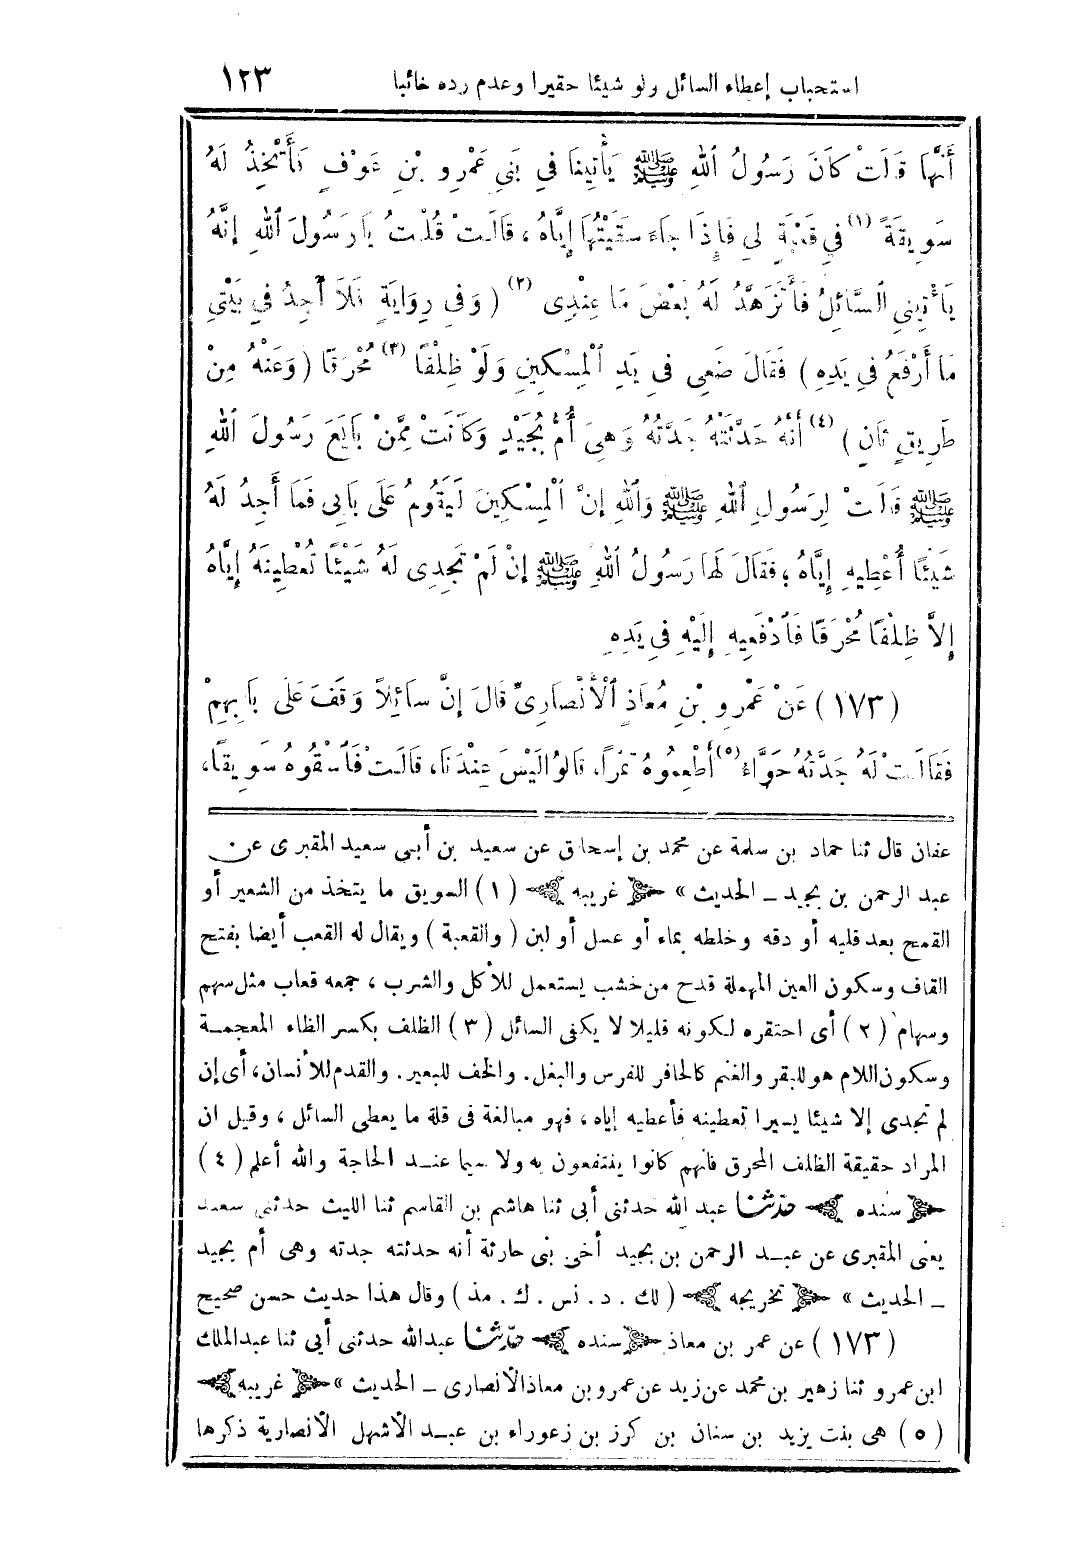 استحباب إعطاء السائل ولو شيئا حقيرا وعدم رده خائبا ١٢٣
أَنَّهَا قَالَتْ كَانَ رَسُولُ اللهِ ﷺ يَأْتِينَا فِي بَنِي عَمْرِو بْنِ عَوْفٍ فَأَتَّخِذُ لَهُ
سَوِيقَةً (١) فِي قَعْبَةٍ لِي فَإِذَا جَاءَ سَقَيْتُهَا إِيَّاهُ ، قَالَتْ قُلْتُ يَارَسُولَ اللهِ إِنَّهُ
يَأْتِينِي السَّائِلُ فَأَتَزَهَّدُ لَهُ بَعْضَ مَا عِنْدِى (٢) ( وَفِى رِوَايَةٍ فَلَا أَجِدُ فِي بَيْتِي
مَا أَرْفَعُ فِي يَدِهِ ) فَقَالَ ضَعِي فِي يَدِ الْمِسْكِينِ وَلَوْ ظِلْفًا (٣) مُحْرَقًا ( وَعَنْهُ مِنْ
طَرِيقٍ ثَانٍ ) (٤) أَنَّهُ حَدَّثَتْهُ جَدَّتُهُ وَهِيَ أُمُّ بُجَيْدٍ وَكَانَتْ مِمَّنْ بَايَعَ رَسُولَ اللهِ
ﷺ قَالَتْ لِرَسُولِ اللهِ ﷺ وَاللهِ إِنَّ الْمِسْكِينَ لَيَقُومُ عَلَى بَابِي فَمَا أَجِدُ لَهُ
شَيْئًا أُعْطِيهِ إِيَّاهُ ؛ فَقَالَ لَهَا رَسُولُ اللهِ ﷺ إِنْ لَمْ تَجِدِى لَهُ شَيْئًا تُعْطِينَهُ إِيَّاهُ
إِلاَّ ظِلْفًا مُحْرَقًا فَادْفَعِيهِ إِلَيْهِ فِي يَدِهِ
( ١٧٣ ) عَنْ عَمْرِو بْنِ مُعَاذٍ الْأَنْصَارِىِّ قَالَ إِنَّ سَائِلاً وَقَفَ عَلَى بَابِهِمْ
فَقَالَتْ لَهُ جَدَّتُهُ حَوَّاءُ (٥) أَطْعِمُوهُ تَمْراً، قَالُوا لَيْسَ عِنْدَنَا، قَالَتْ فَاسْقُوهُ سَوِيقًا،
عفان قال ثنا حماد بن سلمة عن محمد بن إسحاق عن سعيد بن أبى سعيد المقبرى عن
عبد الرحمن بن بجيد ــ الحديث » ﴿ غريبه ﴾ (١) السويق ما يتخذ من الشعير أو
القمح بعد قليه أو دقه وخلطه بماء أو عسل أو لبن ( والقعبة ) ويقال له القعب أيضا بفتح
القاف وسكون العين المهملة قدح من خشب يستعمل للأكل والشرب ، جمعه قعاب مثل سهم
وسهام (٢) أى احتقره لكونه قليلا لا يكفى السائل (٣) الظلف بكسر الظاء المعجمة
وسكون اللام هو للبقر والغنم كالحافر للفرس والبغل. والخف للبعير. والقدم للأنسان، أى إن
لم تجدى إلا شيئا يسيرا تعطينه فأعطيه إياه ، فهو مبالغة فى قلة ما يعطى السائل ، وقيل ان
المراد حقيقة الظلف المحرق فانهم كانوا ينتفعون به ولا سيما عند الحاجة والله أعلم (٤)
﴿ سنده ﴾ حدّثنا عبد الله حدثنى أبى ثنا هاشم بن القاسم ثنا الليث حدثنى سعيد
يعنى المقبرى عن عبد الرحمن بن بجيد أخى بنى حارثة أنه حدثته جدته وهى أم بجيد
ــ الحديث » ﴿ تخريجه ﴾ ( لك . د . نس . ك . مذ ) وقال هذا حديث حسن صحيح
( ١٧٣ ) عن عمر بن معاذ ﴿ سنده ﴾ حدّثنا عبدالله حدثنى أبى ثنا عبدالملك
ابن عمرو ثنا زهير بن محمد عن زيد عن عمرو بن معاذ الأنصارى ــ الحديث » ﴿ غريبه ﴾
(٥) هى بنت يزيد بن سنان بن كرز بن زعوراء بن عبد الأشهل الأنصارية ذكرها